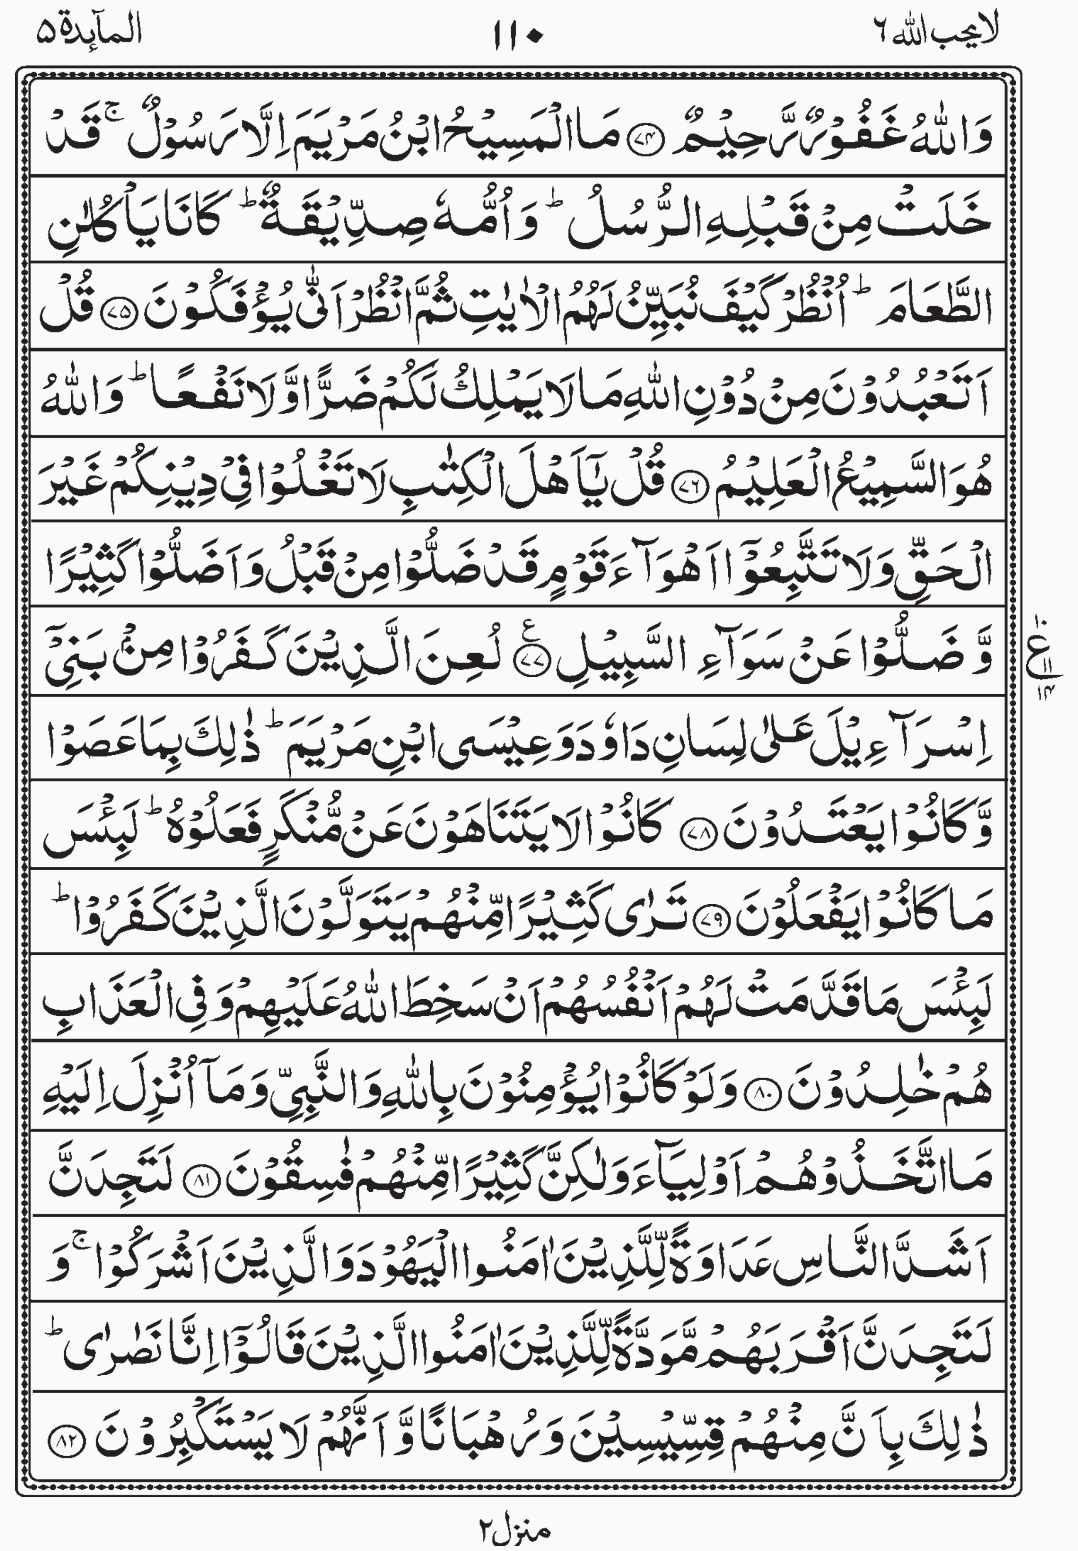 لا يحب الله ٦
١١٠
المآىِٕدة ۵
وَاللّٰهُ غَفُوْرٌ رَّحِيْمٌ ﴿۷۴﴾ مَا الْمَسِيْحُ ابْنُ مَرْيَمَ اِلَّا رَسُوْلٌ ۚ قَدْ
خَلَتْ مِنْ قَبْلِهِ الرُّسُلُ ؕ وَاُمُّهٗ صِدِّيْقَةٌ ؕ كَانَا يَاْكُلٰنِ
الطَّعَامَ ؕ اُنْظُرْ كَيْفَ نُبَيِّنُ لَهُمُ الْاٰيٰتِ ثُمَّ انْظُرْ اَنّٰى يُؤْفَكُوْنَ ﴿۷۵﴾ قُلْ
اَتَعْبُدُوْنَ مِنْ دُوْنِ اللّٰهِ مَا لَا يَمْلِكُ لَكُمْ ضَرًّا وَّلَا نَفْعًا ؕ وَاللّٰهُ
هُوَ السَّمِيْعُ الْعَلِيْمُ ﴿۷۶﴾ قُلْ يٰۤاَهْلَ الْكِتٰبِ لَا تَغْلُوْا فِيْ دِيْنِكُمْ غَيْرَ
الْحَقِّ وَلَا تَتَّبِعُوْۤا اَهْوَآءَ قَوْمٍ قَدْ ضَلُّوْا مِنْ قَبْلُ وَاَضَلُّوْا كَثِيْرًا
وَّضَلُّوْا عَنْ سَوَآءِ السَّبِيْلِ ﴿۷۷﴾ ع لُعِنَ الَّذِيْنَ كَفَرُوْا مِنْۢ بَنِيْۤ
اِسْرَآءِيْلَ عَلٰى لِسَانِ دَاوٗدَ وَعِيْسَى ابْنِ مَرْيَمَ ؕ ذٰلِكَ بِمَا عَصَوْا
وَّكَانُوْا يَعْتَدُوْنَ ﴿۷۸﴾ كَانُوْا لَا يَتَنَاهَوْنَ عَنْ مُّنْكَرٍ فَعَلُوْهُ ؕ لَبِئْسَ
مَا كَانُوْا يَفْعَلُوْنَ ﴿۷۹﴾ تَرٰى كَثِيْرًا مِّنْهُمْ يَتَوَلَّوْنَ الَّذِيْنَ كَفَرُوْا ؕ
لَبِئْسَ مَا قَدَّمَتْ لَهُمْ اَنْفُسُهُمْ اَنْ سَخِطَ اللّٰهُ عَلَيْهِمْ وَفِي الْعَذَابِ
هُمْ خٰلِدُوْنَ ﴿۸۰﴾ وَلَوْ كَانُوْا يُؤْمِنُوْنَ بِاللّٰهِ وَالنَّبِيِّ وَمَاۤ اُنْزِلَ اِلَيْهِ
مَا اتَّخَذُوْهُمْ اَوْلِيَآءَ وَلٰكِنَّ كَثِيْرًا مِّنْهُمْ فٰسِقُوْنَ ﴿۸۱﴾ لَتَجِدَنَّ
اَشَدَّ النَّاسِ عَدَاوَةً لِّلَّذِيْنَ اٰمَنُوا الْيَهُوْدَ وَالَّذِيْنَ اَشْرَكُوْا ۚ وَ
لَتَجِدَنَّ اَقْرَبَهُمْ مَّوَدَّةً لِّلَّذِيْنَ اٰمَنُوا الَّذِيْنَ قَالُوْۤا اِنَّا نَصٰرٰى ؕ
ذٰلِكَ بِاَنَّ مِنْهُمْ قِسِّيْسِيْنَ وَرُهْبَانًا وَّاَنَّهُمْ لَا يَسْتَكْبِرُوْنَ ﴿۸۲﴾
منزل۲